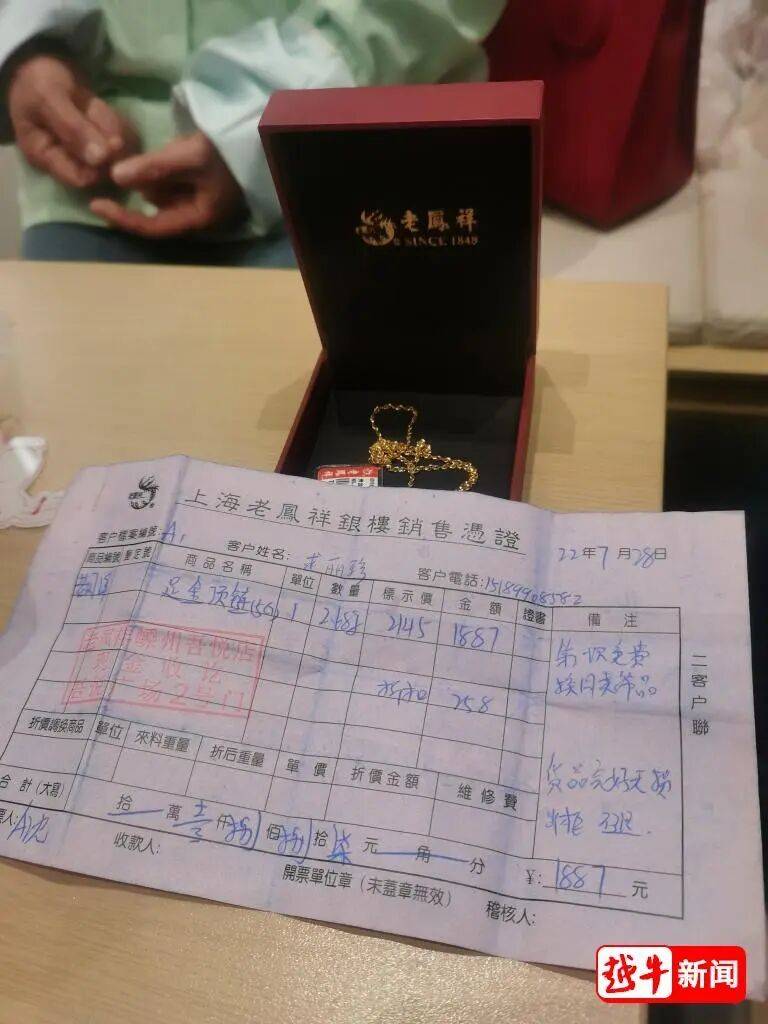 老鳳祥
SINCE 1848
上海老鳳祥銀樓銷售憑證
客户檔案編號:
客户姓名:
客户電話:
22年7月28日
商品編號
商品名稱 單位 數量 標示價 金額 證書 備注
足金项链(5G) 1 2.68g 2145 1887
折扣 258
第一次免费
换同类等品
货品完好无损
嵊州吾悦店
现金收讫
广场2号门
折價調换商品 單位 來料重量 折后重量 單價 折價金額 維修費
合計(大寫) 拾 萬 仟 捌 佰 捌 拾 柒 元 角 分
¥: 1887 元
收款人:
開票單位章(未蓋章無效)
稽核人:
二客户聯
越牛新闻